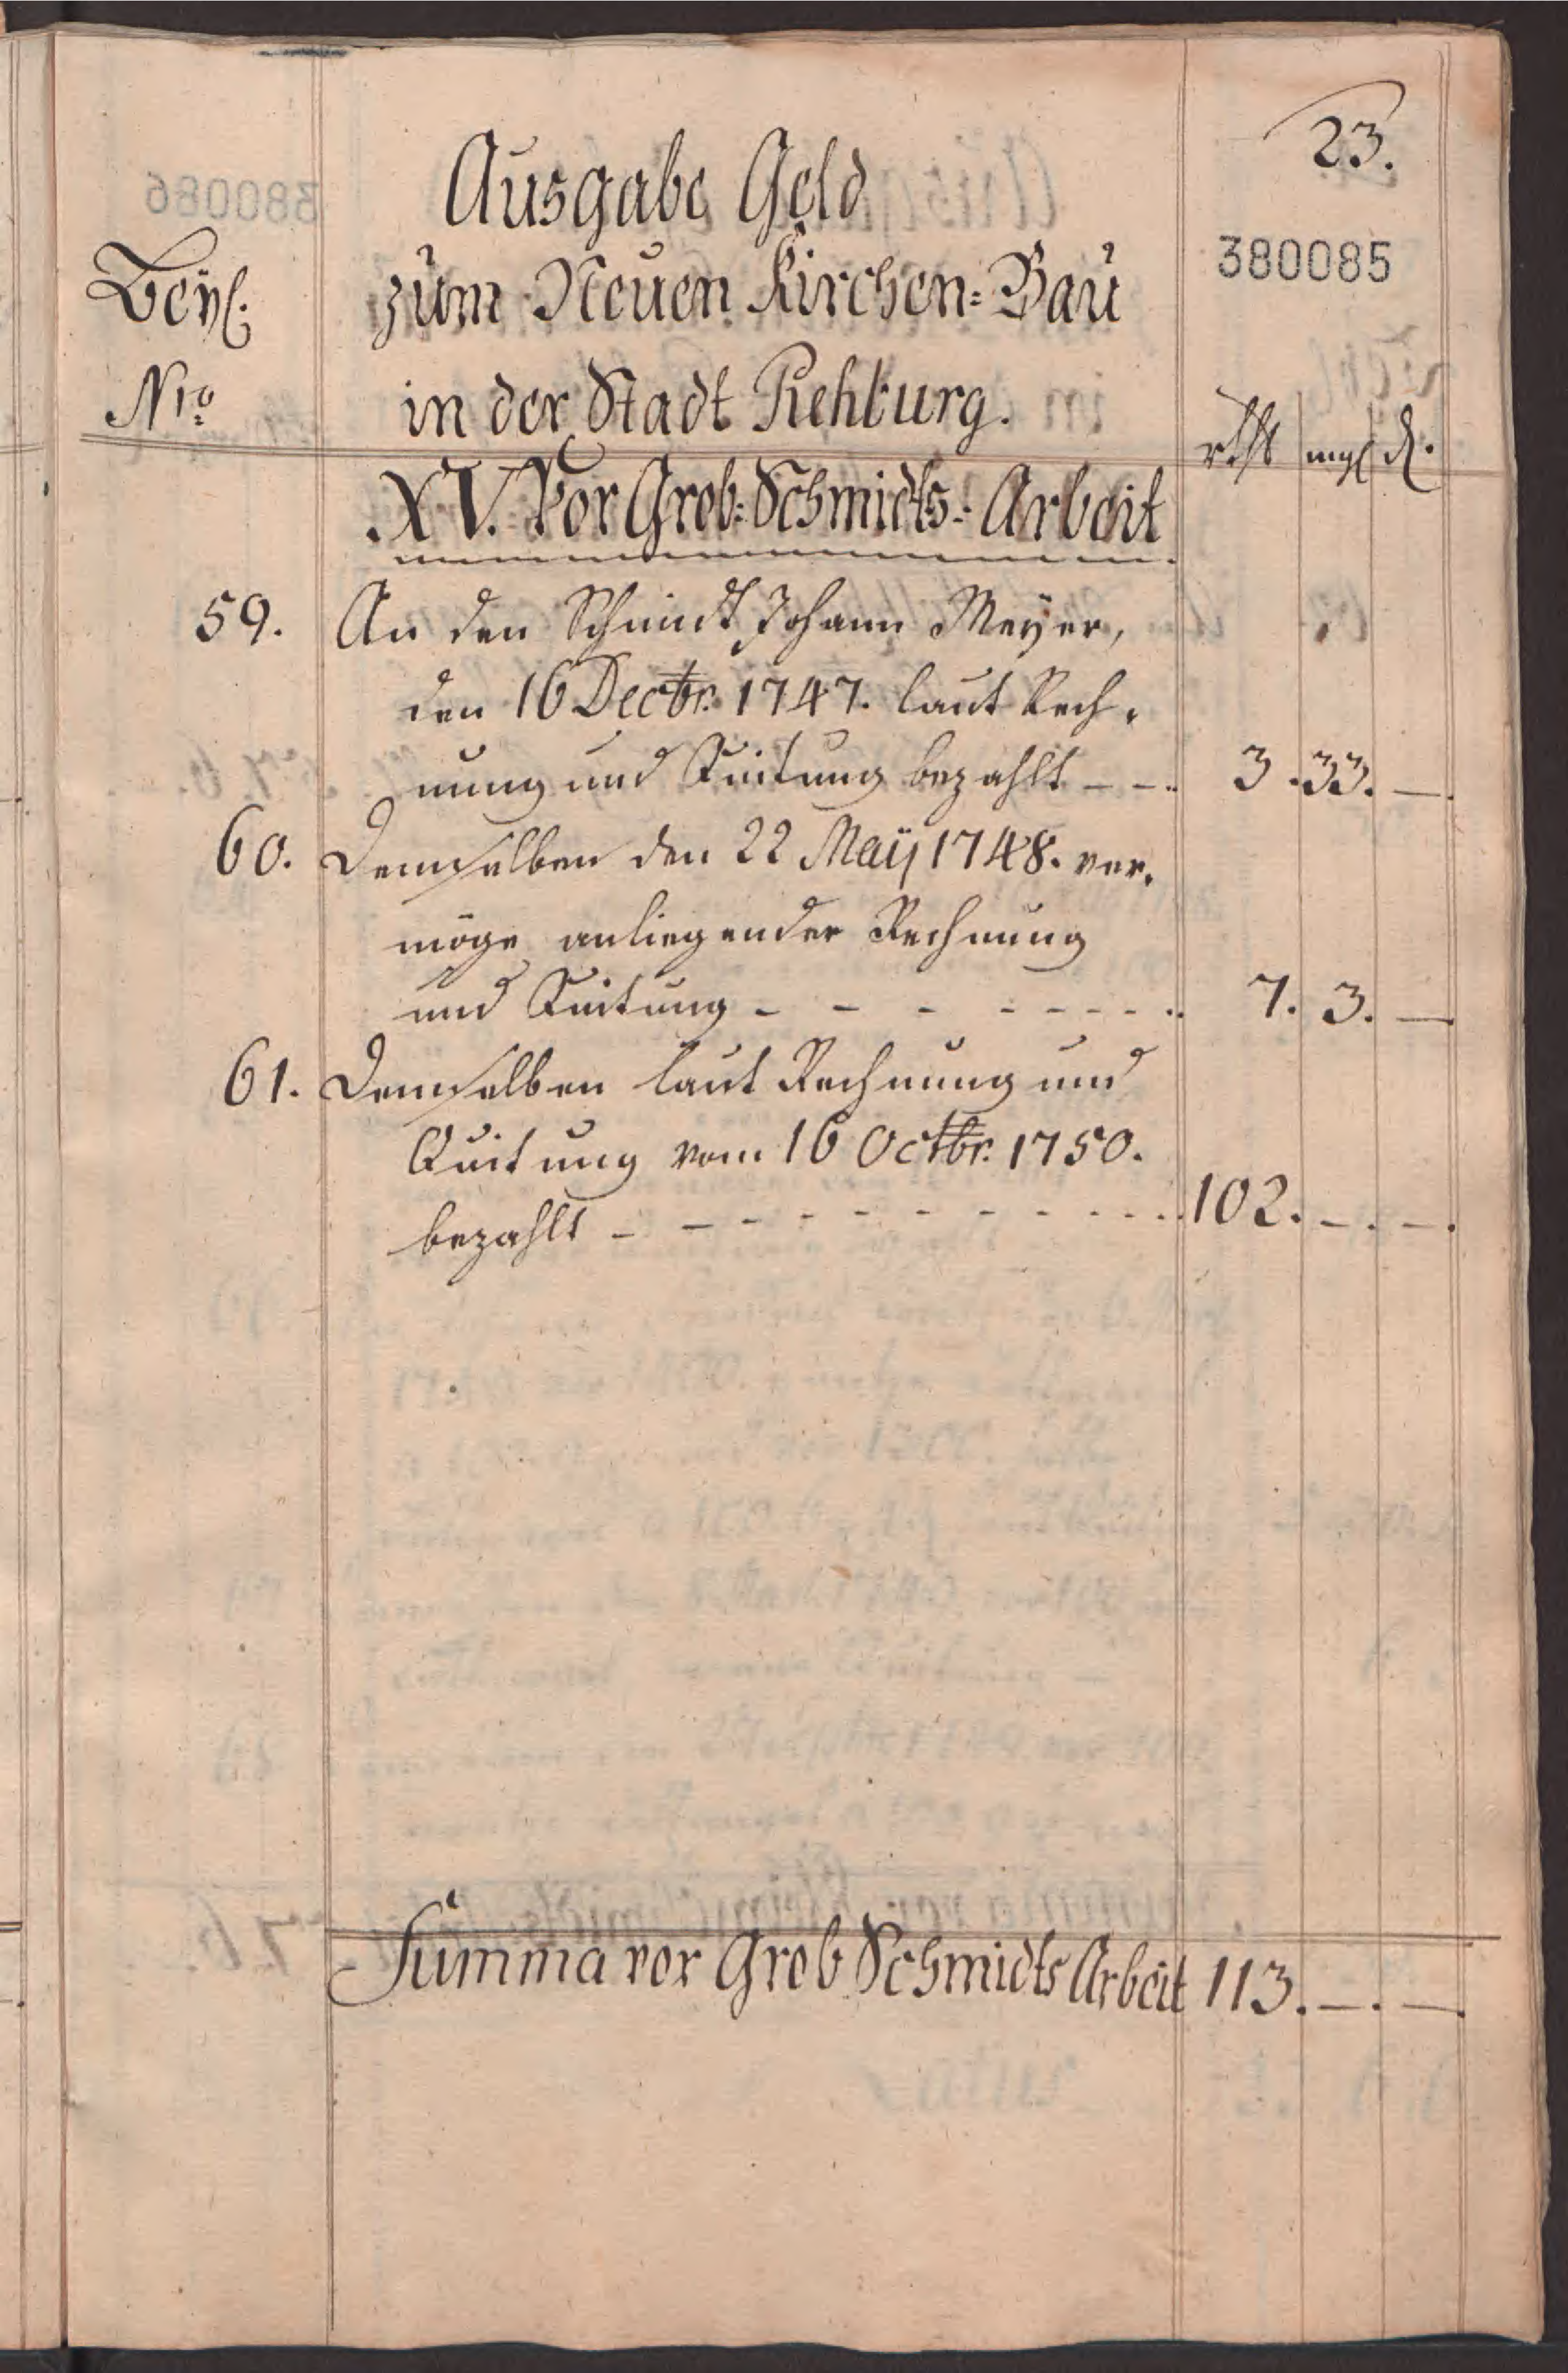 23.
Ausgabe Geld
380085
Beyl. zum Neuen Kirchen-Bau
Nro in der Stadt Rehburg.
rthl mgl d.
XV. Vor Grob-Schmidts-Arbeit
59. An den Schmidt Johann Meÿer,
den 16 Decbr. 1747. laut Rech-
nung und Quitung bezahlt - - 3. 33. —.
60. Demselben den 22 Maÿ 1748. ver-
möge anliegender Rechnung
und Quitung - - - - - - - 7. 3. —
61. Demselben laut Rechnung und
Quitung vom 16 Octbr. 1750.
bezahlt - - - - - - - - - - 102. —. —.
Summa vor Grob Schmidts Arbeit 113. —. —.